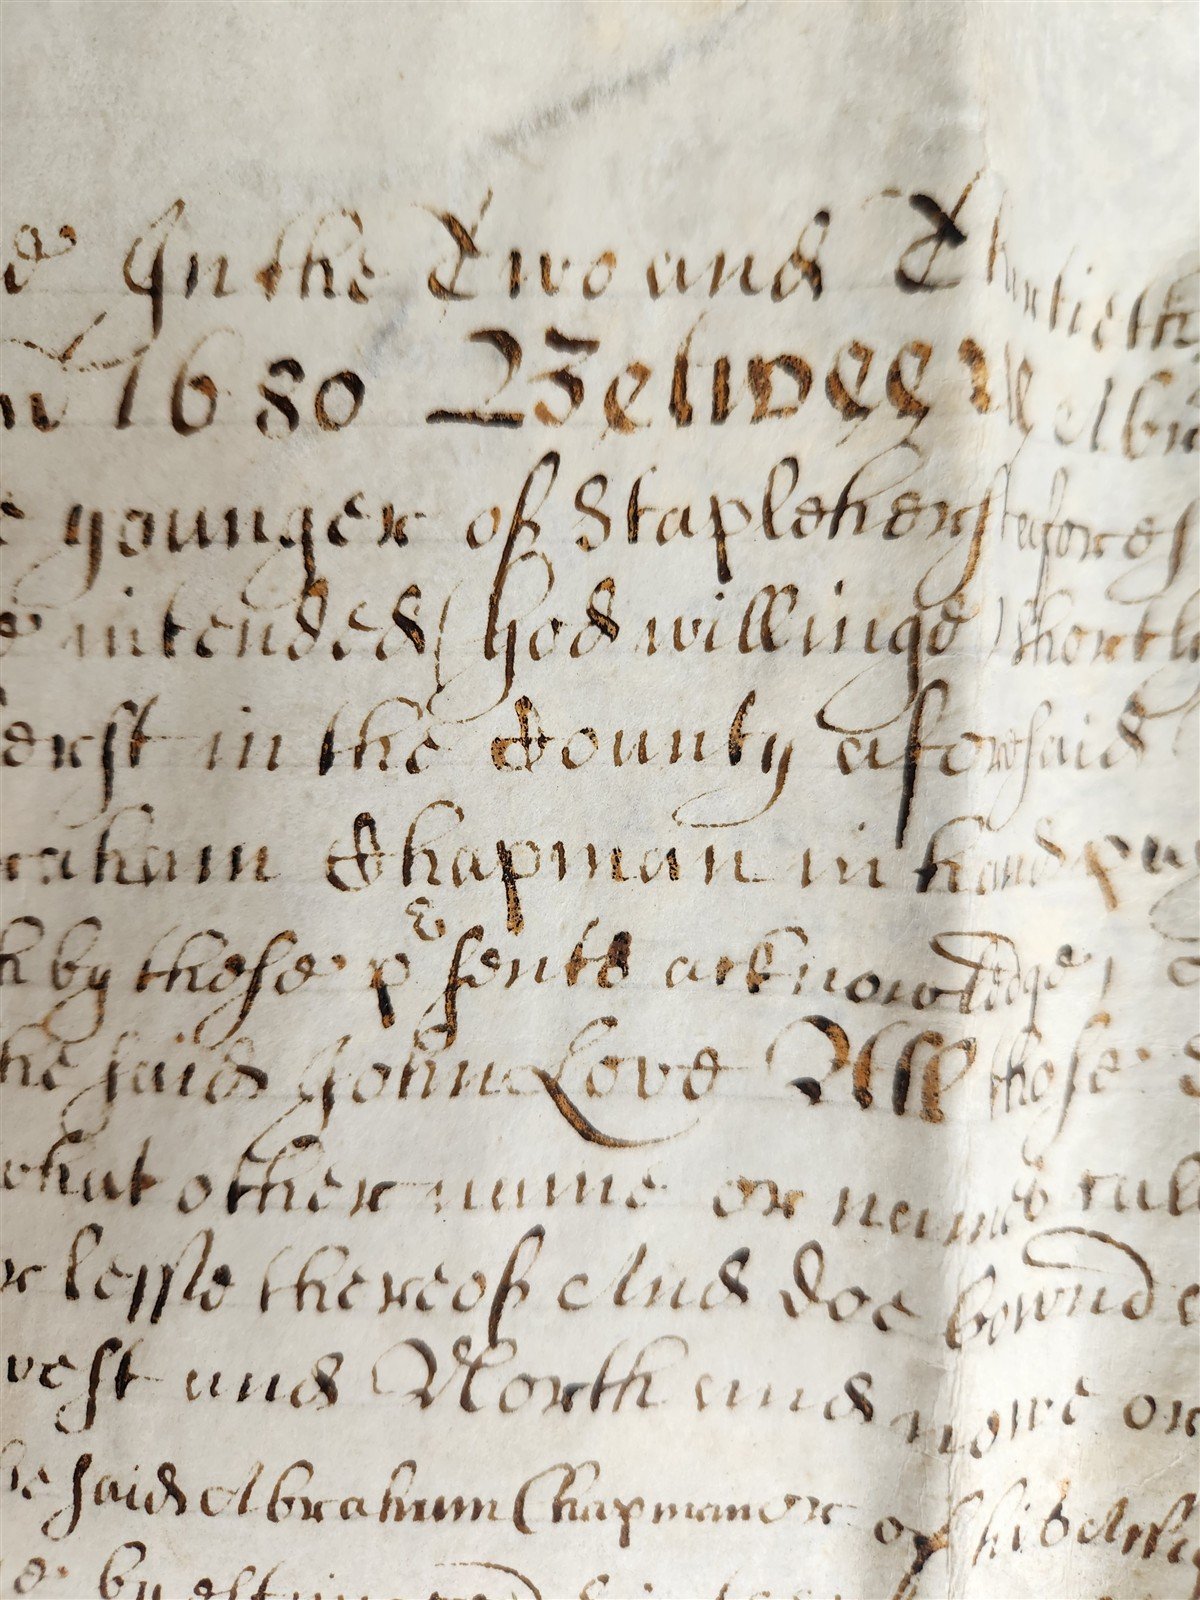 In the Two and Thirtieth
1680 Betweene Abra
younger of Stapleherst afores
intended (god willinge) shortly
erst in the County aforesaid
raham Chapman in hand pay
by these psents acknowledge,
he said John Love All those
what other name or names call
r lesse thereof And doe bownd
west and North and nowe or
he said Abraham Chapman or of his Assig
by estim